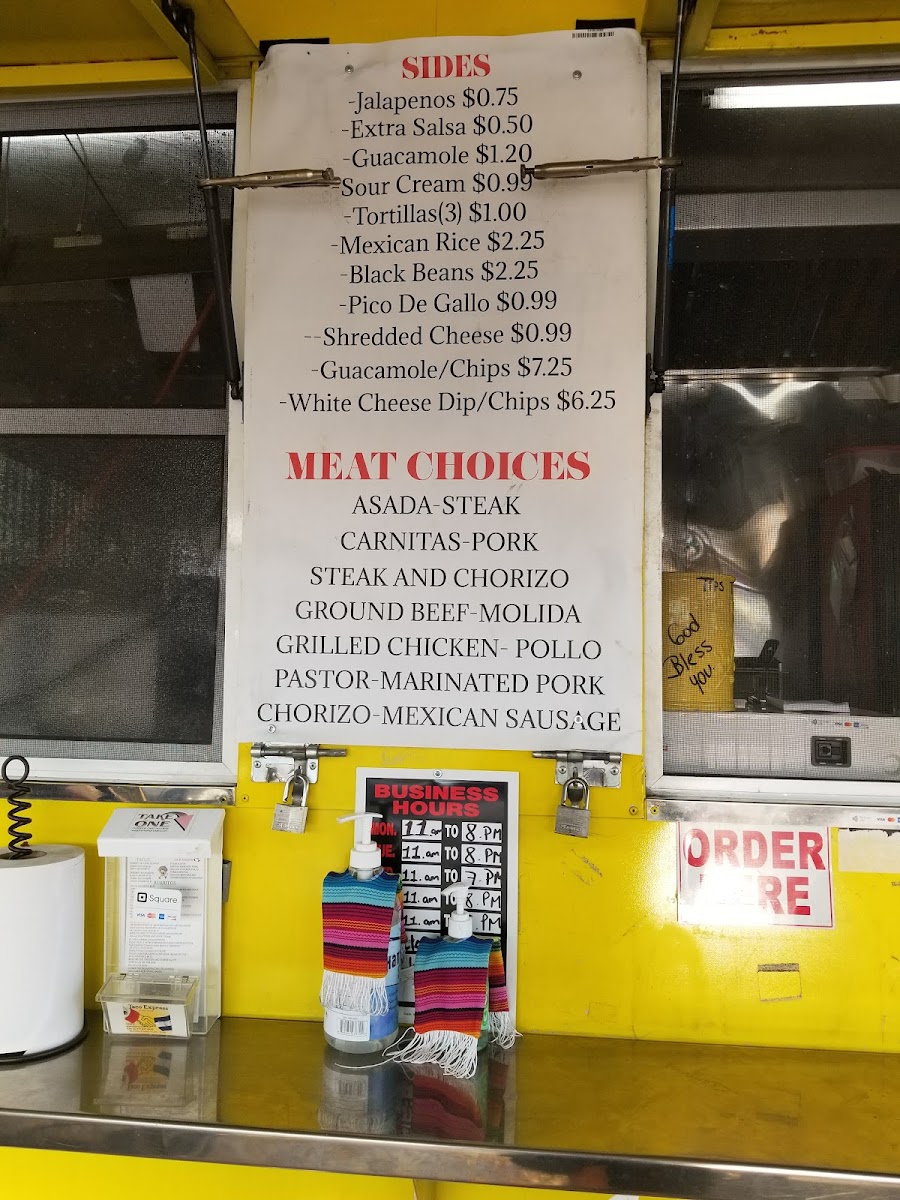 SIDES
-Jalapenos $0.75
-Extra Salsa $0.50
-Guacamole $1.20
-Sour Cream $0.99
-Tortillas(3) $1.00
-Mexican Rice $2.25
-Black Beans $2.25
-Pico De Gallo $0.99
--Shredded Cheese $0.99
-Guacamole/Chips $7.25
-White Cheese Dip/Chips $6.25
MEAT CHOICES
ASADA-STEAK
CARNITAS-PORK
STEAK AND CHORIZO
GROUND BEEF-MOLIDA
GRILLED CHICKEN- POLLO
PASTOR-MARINATED PORK
CHORIZO-MEXICAN SAUSAGE
TIPS
God
Bless
you
BUSINESS
HOURS
MON. 11.am TO 8.PM
11.am TO 8.PM
11.am TO 7.PM
11.am 8.PM
11.am PM
TAKE
ONE
Square
VISA
Taco Express
ORDER